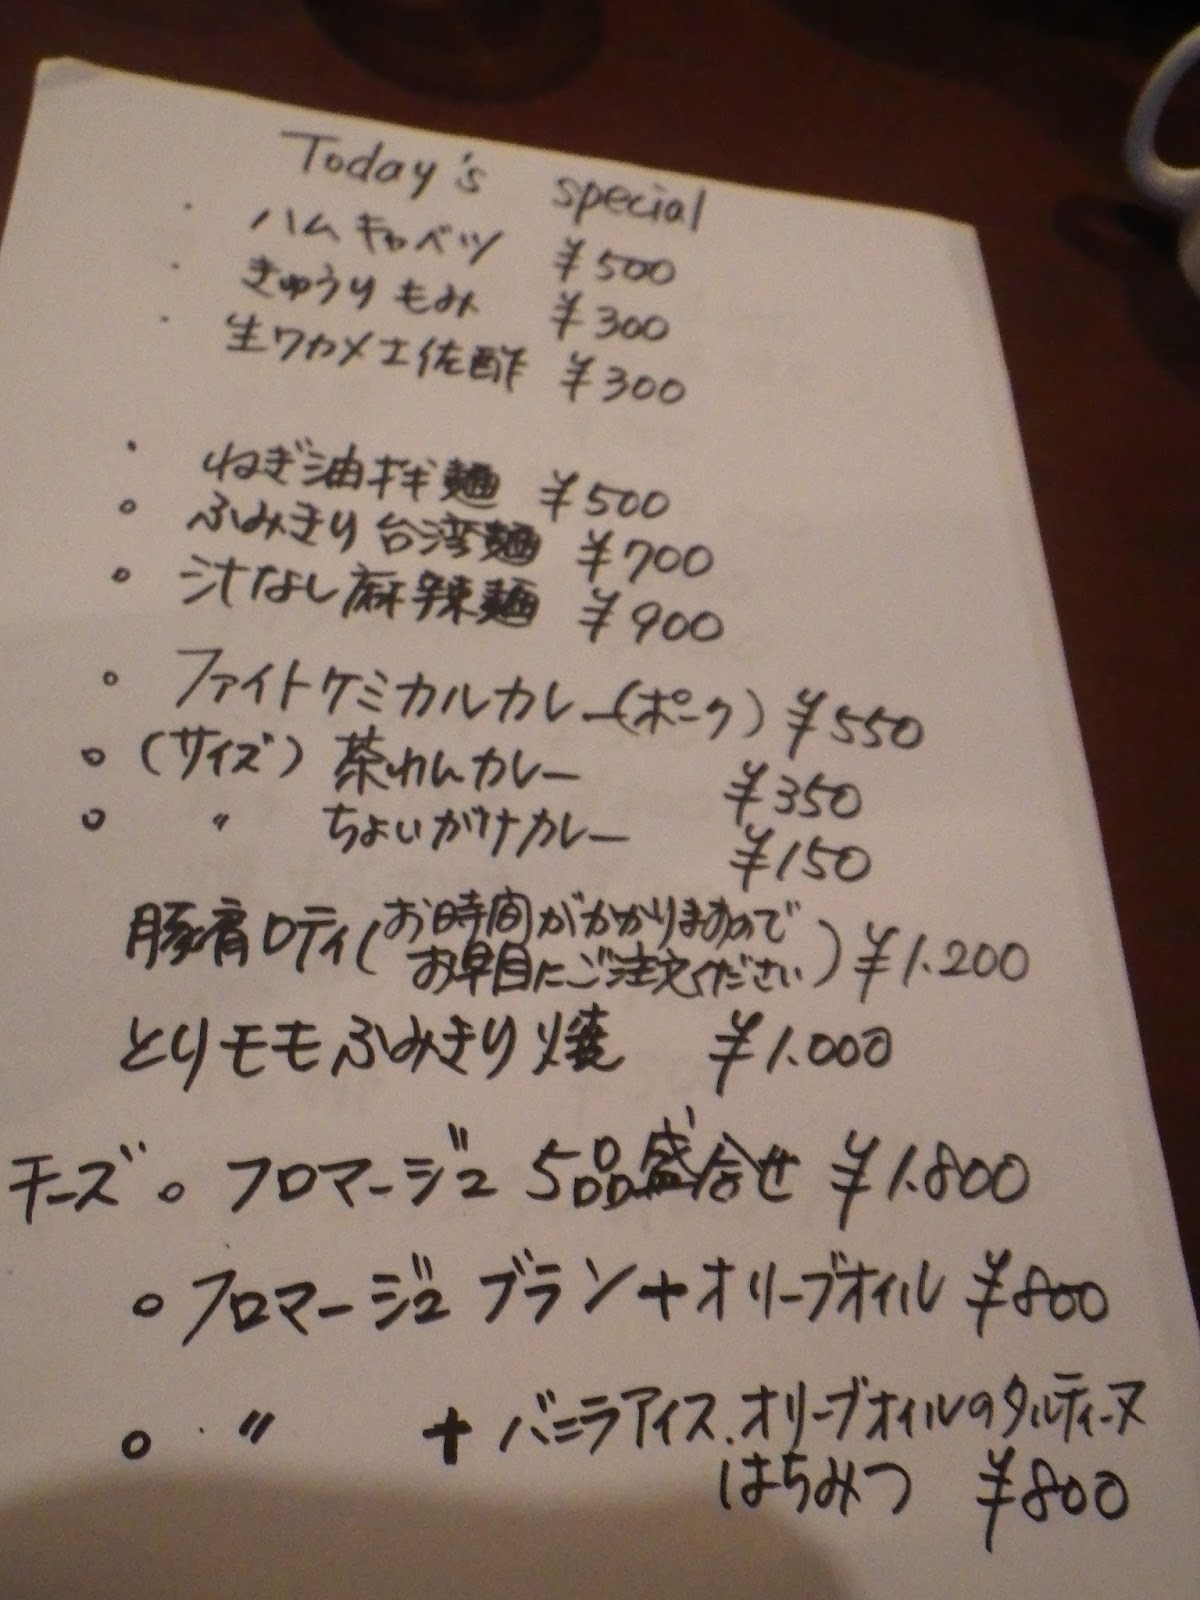 Today's special
・ ハムキャベツ ¥500
・ きゅうりもみ ¥300
・ 生ワカメ土佐酢 ¥300
・ ねぎ油拌麺 ¥500
○ ふみきり台湾麺 ¥700
○ 汁なし麻辣麺 ¥900
○ ファイトケミカルカレー(ポーク) ¥550
○ (サイズ) 茶わんカレー ¥350
○ 〃 ちょいがけカレー ¥150
豚肩ロティ(お時間がかかりますので
お早目にご注文ください) ¥1.200
とりモモふみきり焼 ¥1.000
チーズ ○ フロマージュ 5品盛合せ ¥1.800
○ フロマージュ ブラン+オリーブオイル ¥800
○ 〃 + バニラアイス.オリーブオイルのタルティーヌ
はちみつ ¥800